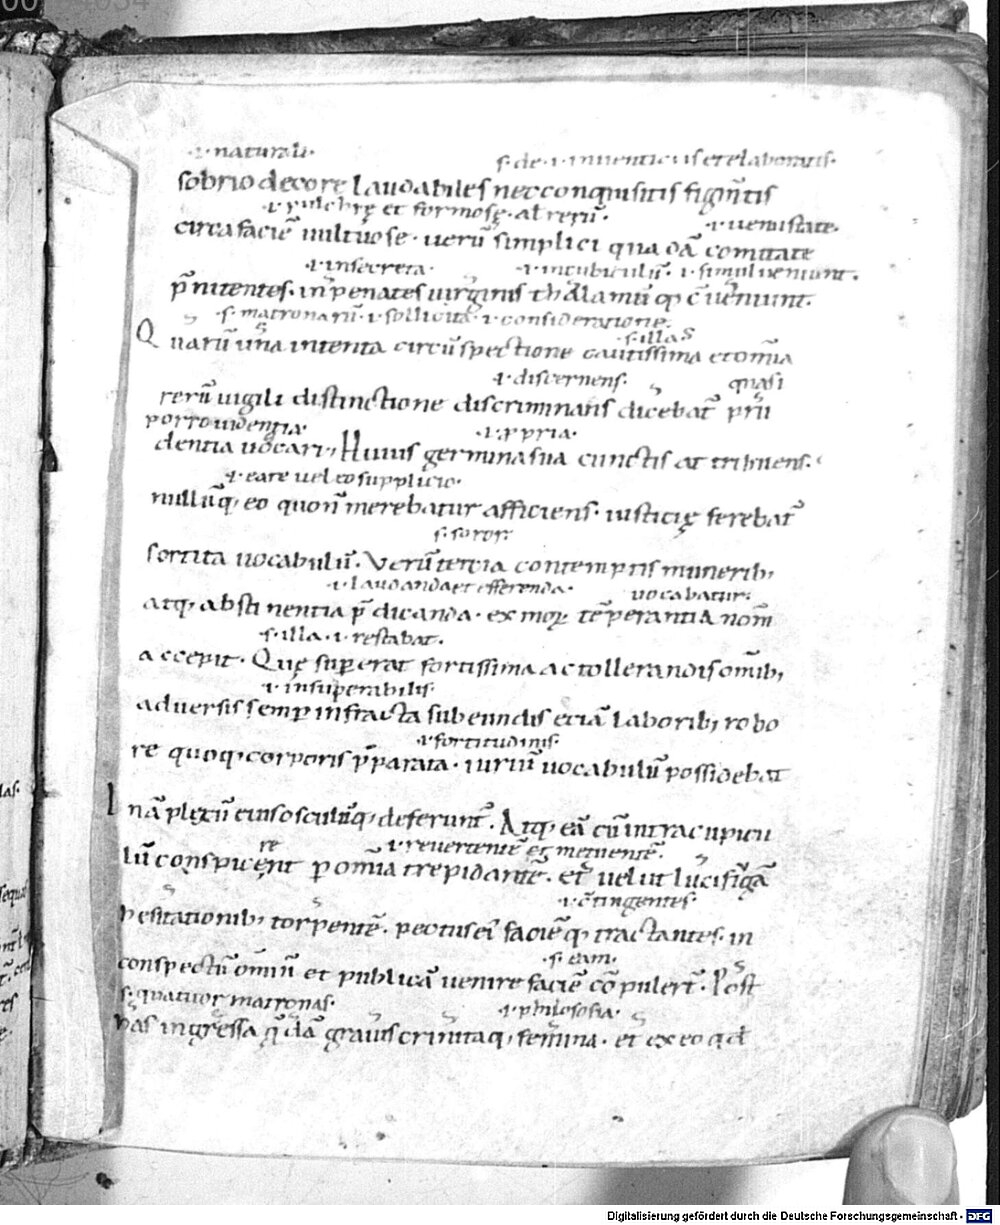 ·i· naturali·
s· de · i · inuenticiis et elaboratis·
sobrio decore laudabiles nec conquisitis figm̄tis
·i· pulchrę et formosę · al rerū·
·i· uenustate·
circa faciē uultuose · uerū simplici quadā comitate
·i· in secreta·
·i· in cubiculū· i· simul ueniunt·
p̄nitentes· in penates uirginis thalamū q; c̄ueniunt·
s· matronarū· i· sollicita· i· consideratione·
s· illas
Quarū una intenta circūspectione cautissima et om̄ia
·i· discernens·
quasi
rerū uigili distinctione discriminans dicebat prū
porro uidentia·
·i· p̄pria·
dentia uocari; Huius germana sua cunctis at tribuens·
·i· ea re uel eo supplicio·
nullūq; eo quo n̄ merebatur afficiens· iusticię ferebat
s· soror·
sortita uocabulū· Verū tercia contemptis munerib;
·i· laudanda et efferenda·
uocabatur·
atq; abstinentia p̄dicanda· ex mor tēperantia nom̄
s· illa· i· restabat·
accepit· Quę superat fortissima ac tollerandis om̄ib;
·i· insuperabilis·
aduersis semp infracta subeundis etiā laborib; robo
·i· fortitudinis·
re quoq; corporis p̄parata· uiriū uocabulū possidebat
Inā plexū eius osculūq; deferunt· Atq; eā cū intra cupicu
re
·i· reuerentē et metuentē·
lū conspicerent p om̄ia trepidantē· et uel ut lucifugā
·i· c̄tingentes·
hesitationib; torpentē· pectus ei faciēq; tractantes· in
s· eam·
conspectū omniū et publicā uenire faciē cōpulert· Post
s· quatuor matronas·
·i· philosofia·
has ingressa quedā grauis crinitaq; femina· et ex eo qd
Digitalisierung gefördert durch die Deutsche Forschungsgemeinschaft - DFG